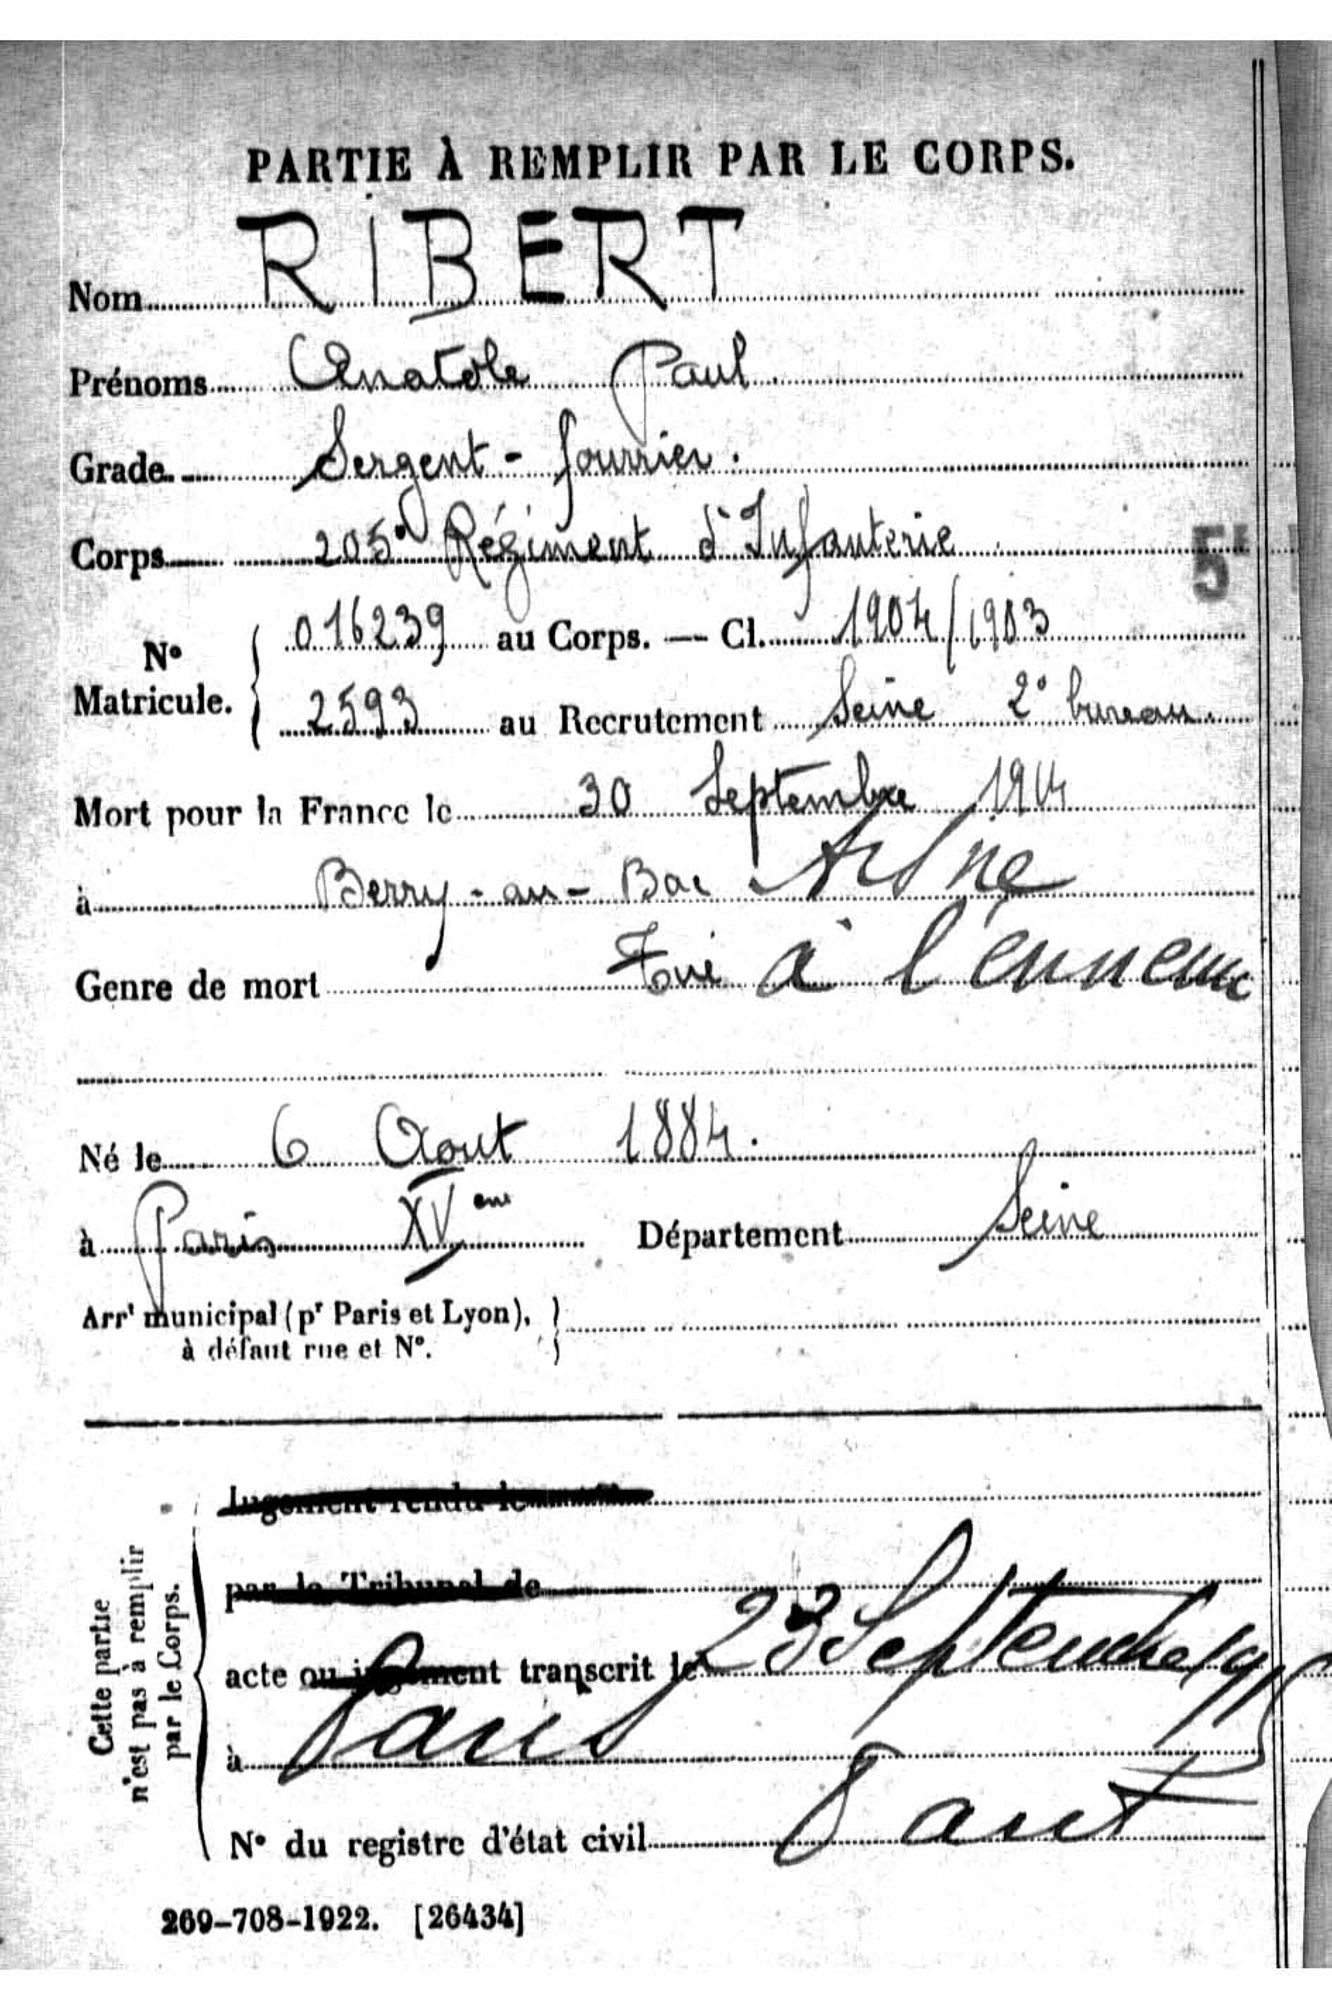 PARTIE À REMPLIR PAR LE CORPS.
Nom RIBERT
Prénoms Anatole Paul
Grade Sergent-fourrier.
Corps 205e Régiment d'Infanterie
5e
N° Matricule. { 016239 au Corps. — Cl. 1904/1903
2593 au Recrutement Seine 2e bureau.
Mort pour la France le 30 Septembre 1914
à Berry-au-Bac Aisne
Genre de mort Tué à l'ennemi
Né le 6 Aout 1884.
à Paris XVème Département Seine
Arrt municipal (pr Paris et Lyon),
à défaut rue et N°.
Cette partie n'est pas à remplir par le Corps.
Jugement rendu le
par le Tribunal de
acte ou jugement transcrit le 23 Septembre 1915
à Paris
N° du registre d'état civil 8 art
269-708-1922. [26434]